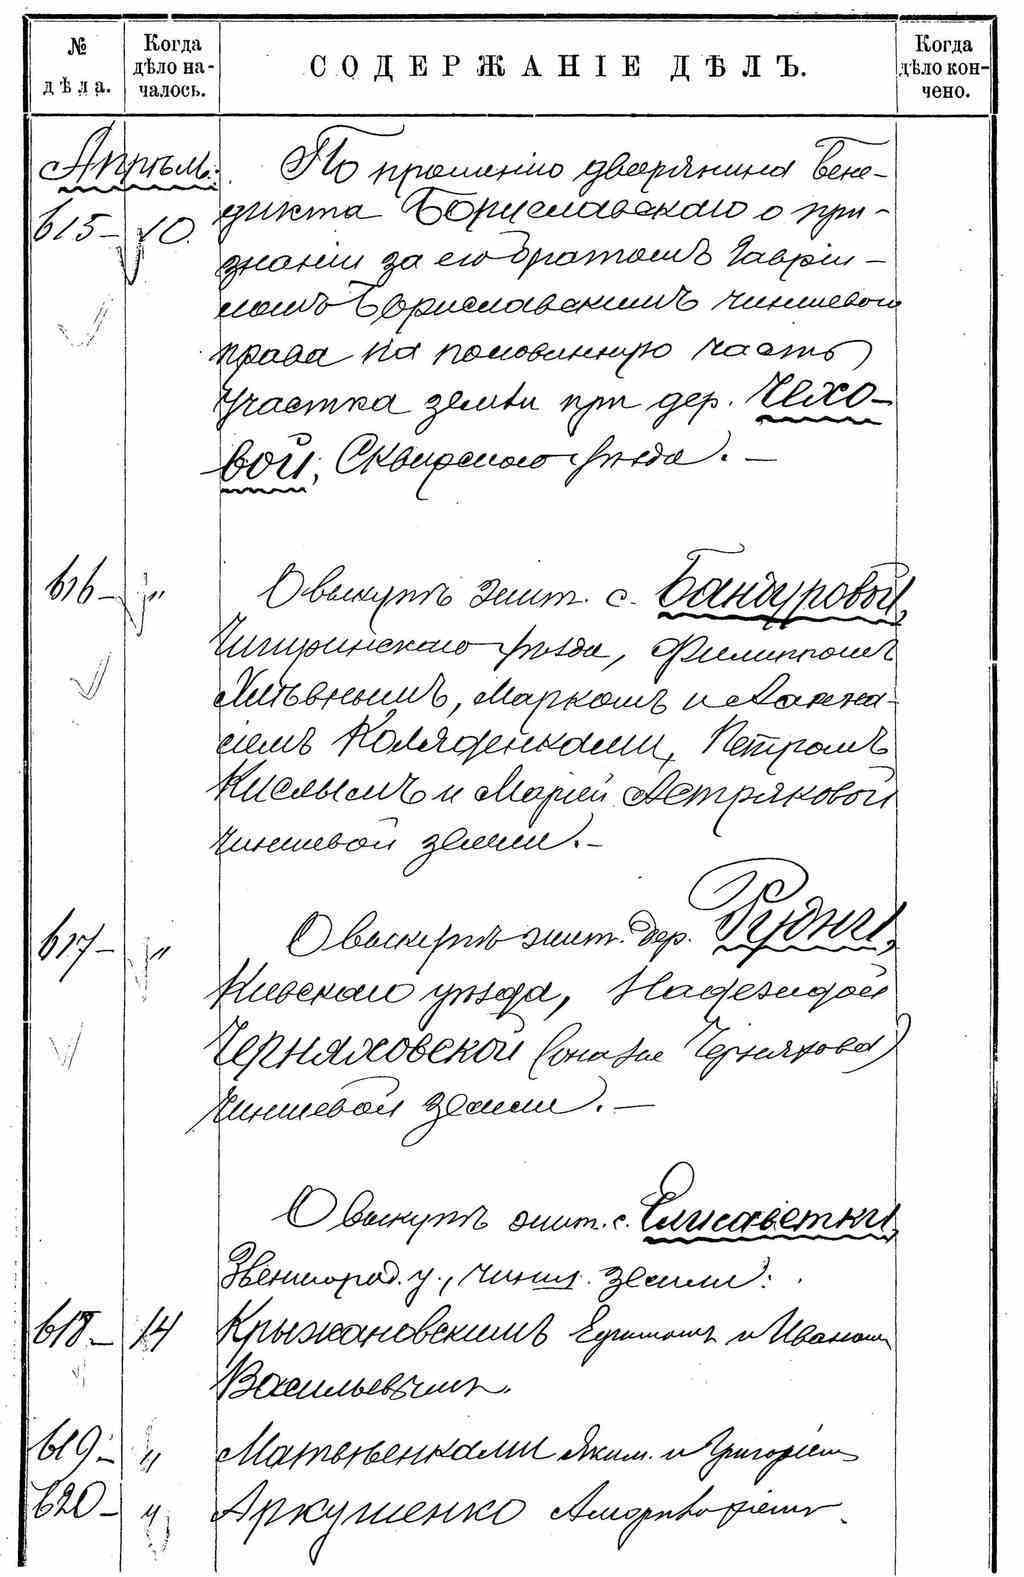 № дѣла.
Когда дѣло на-
чалось.
СОДЕРЖАНІЕ ДѢЛЪ.
Когда дѣло кон-
чено.
Апрѣль.
По прошенію дворянина Бене-
615- 10. дикта Бориславскаго о при-
знаніи за его братомъ Гаврі-
ломъ Бориславскимъ чиншеваго
права на половинную часть
участка земли при дер. Чехо-
вой, Сквирскаго уѣзда. -
616- " О выкупѣ жит. с. Бандуровой,
Чигиринскаго уѣзда, Филиппомъ
Маркомъ и
сіемъ Коляденками, Петромъ
Кислымъ и Маріей
чиншевой земли. -
617- " О выкупѣ жит. дер. Рудни,
Кіевскаго уѣзда, Надеждой
Черняховской (она же Черняхова)
чиншевой земли. -
О выкупѣ жит. с. Елисаветки,
Звенигород. у., чинш. земли:
618- 14 Крыжановскимъ и Иваномъ
Васильевымъ.
619- " Матвѣенками Яким. и Григоріемъ
620- " Аркушенко